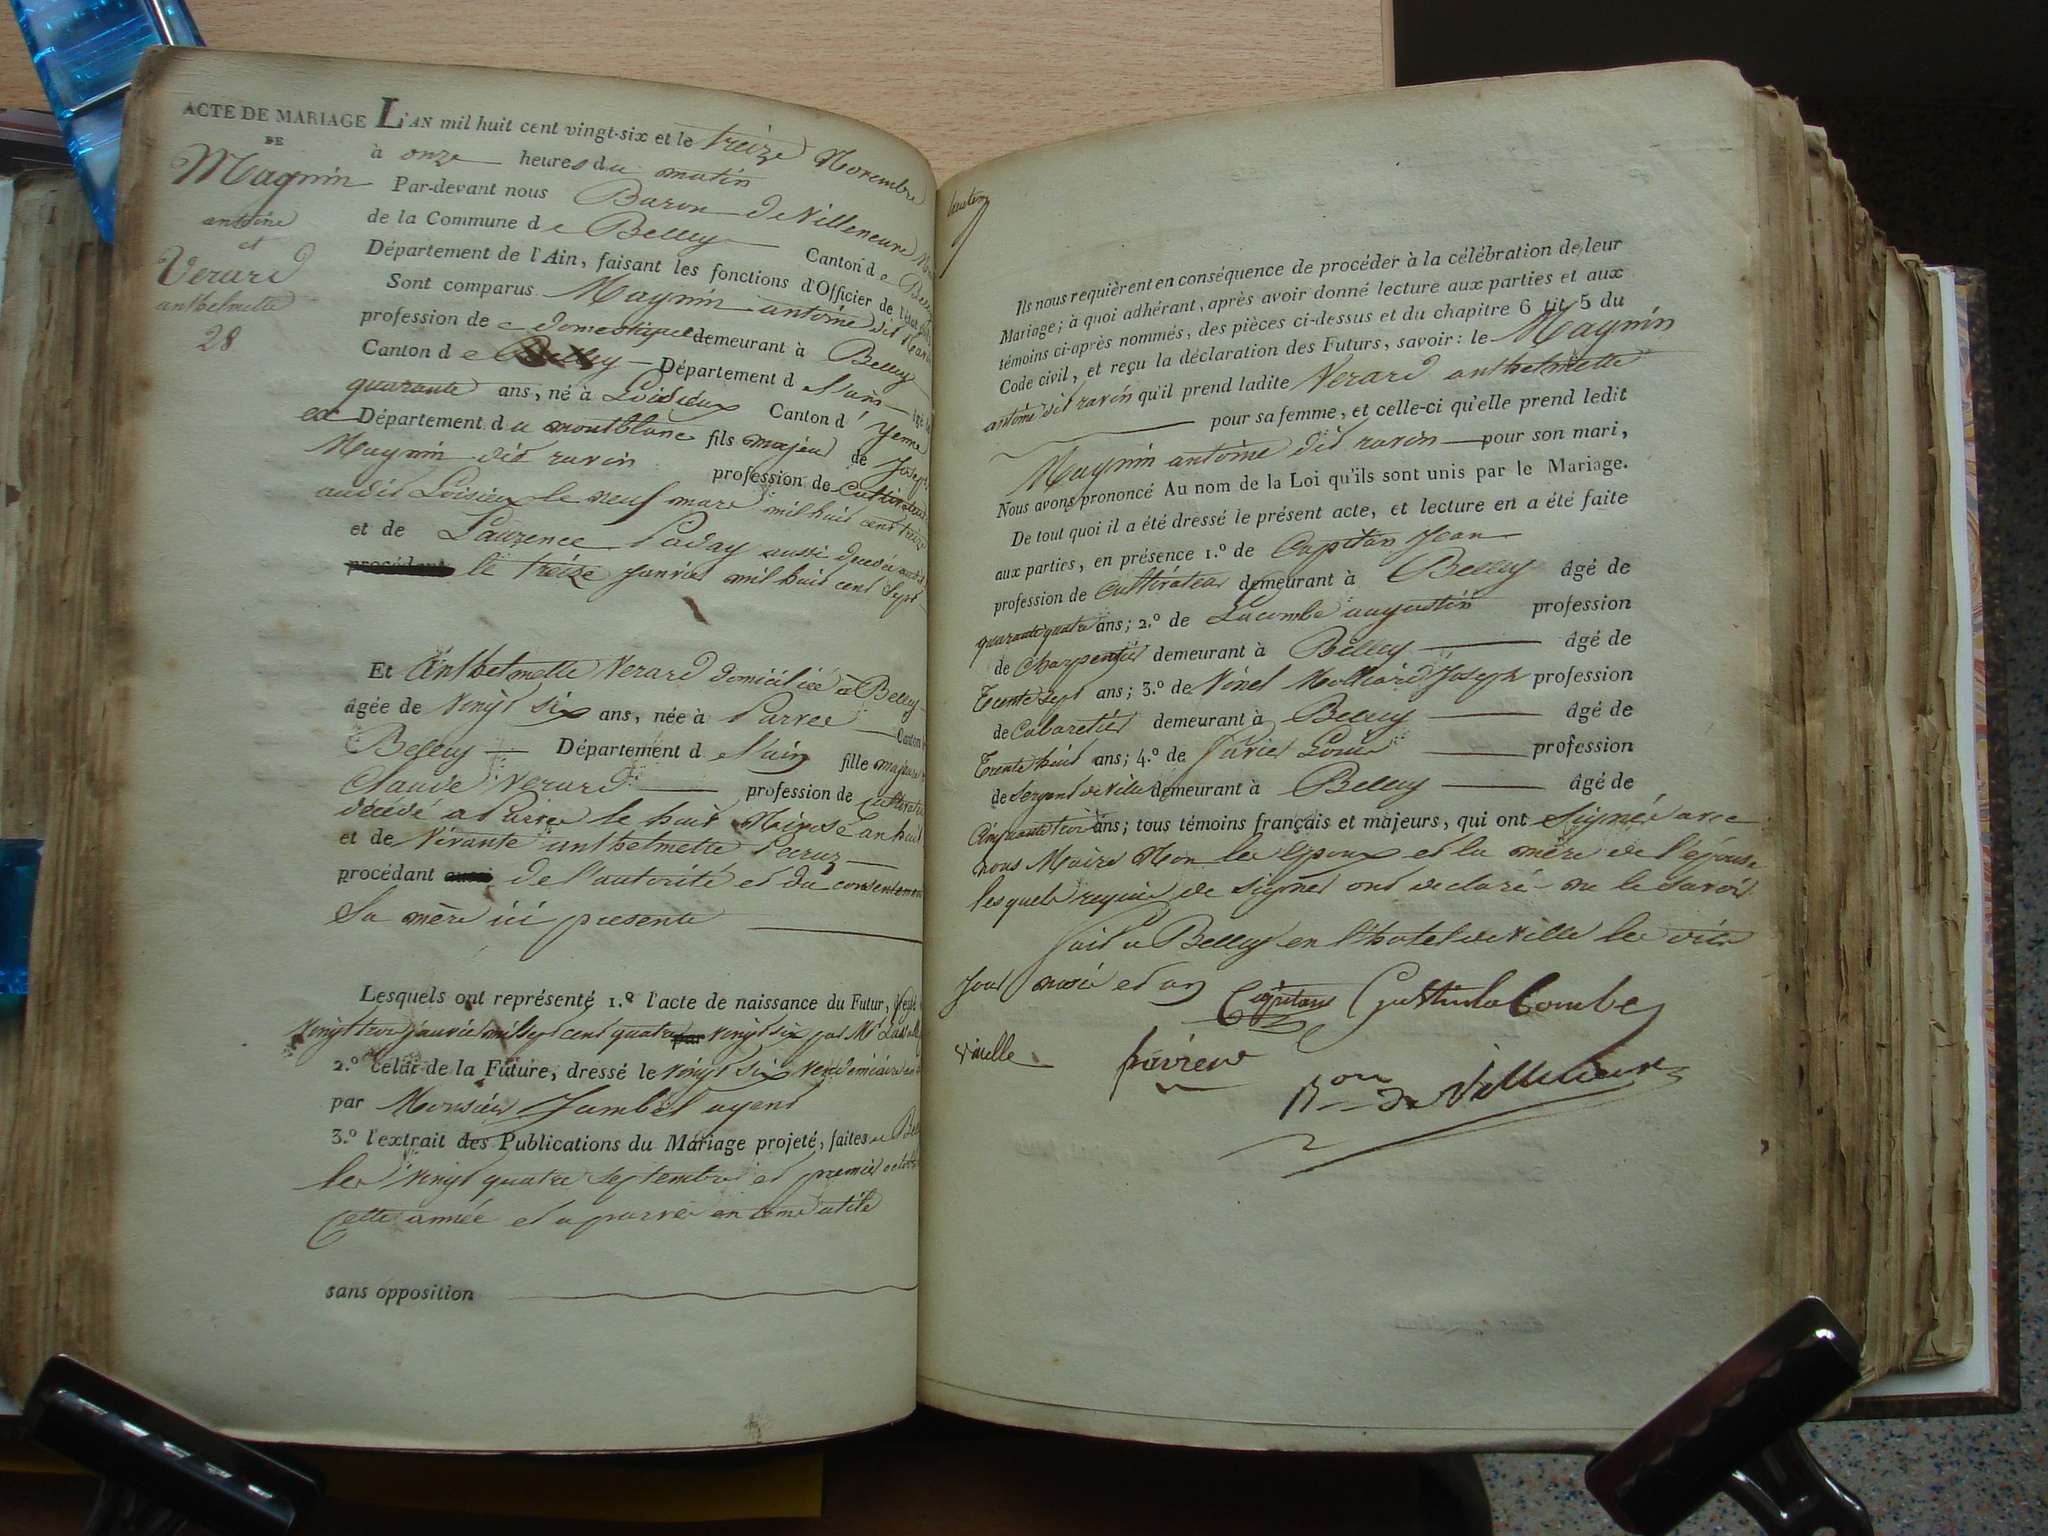 ACTE DE MARIAGE
DE
Magnin
antoine
et
Verard
anthelmette
28
L'AN mil huit cent vingt-six et le treize Novembre
à onze heures du matin
Par-devant nous Baron de Villeneuve
de la Commune de Belley Canton de Belley
Département de l'Ain, faisant les fonctions d'Officier de l'état
Sont comparus Magnin antoine dit
profession de domestique demeurant à Belley
Canton de Belley Département d l'ain
quarante ans, né à Loisieux Canton d' yenne
Département du montblanc fils majeur de Joseph
Magnin dit ravin profession de Cultivateur
audit Loisieu le neuf mars mil huit cent treize
et de Laurence aussi decedée
procédant le treize janvier mil huit cent sept
Et Anthelmette Verard domiciliée à Belley
âgée de vingt six ans, née à Parves Canton
Belley Département d l'ain fille majeure
Claude Verard profession de Cultivateur
décédé a Parves le huit Nivose an huit
et de Vivante anthelmette
procédant de l'autorité et du consentement
Sa mère ici presente
Lesquels ont représenté 1.º l'acte de naissance du Futur,
vingt trois janvier mil sept cent quatre vingt six par Mr
2.º celui de la Future, dressé le vingt six vendemiaire
par Monsieur Jambet agent
3.º l'extrait des Publications du Mariage projeté, faites a
les vingt quatre septembre et premier octobre
Cette année et a parves en tems utile
sans opposition
Ils nous requièrent en conséquence de procéder à la célébration de leur
Mariage; à quoi adhérant, après avoir donné lecture aux parties et aux
témoins ci-après nommés, des pièces ci-dessus et du chapitre 6 tit 5 du
Code civil, et reçu la déclaration des Futurs, savoir: le Magnin
antoine dit ravin qu'il prend ladite Verard anthelmette
pour sa femme, et celle-ci qu'elle prend ledit
Magnin antoine dit ravin pour son mari,
Nous avons prononcé Au nom de la Loi qu'ils sont unis par le Mariage.
De tout quoi il a été dressé le présent acte, et lecture en a été faite
aux parties, en présence 1.º de Capitan Jean
profession de Cultivateur demeurant à Belley âgé de
quarante quatre ans; 2.º de Lacombe augustin profession
de Charpentier demeurant à Belley âgé de
Trente sept ans; 3.º de Vinel Joseph profession
de Cabaretier demeurant à Belley âgé de
Trente huit ans; 4.º de Louis profession
de Sergent de ville demeurant à Belley âgé de
Cinquante trois ans; tous témoins français et majeurs, qui ont Signé avec
nous Maire Non les Epoux et la mère de l'épouse
lesquels requis de signer ont declaré ne le savoir
fait a Belley en l'hotel de Ville les dits
jour mois et an
Capitan
vinelle
Bon de Villeneuve